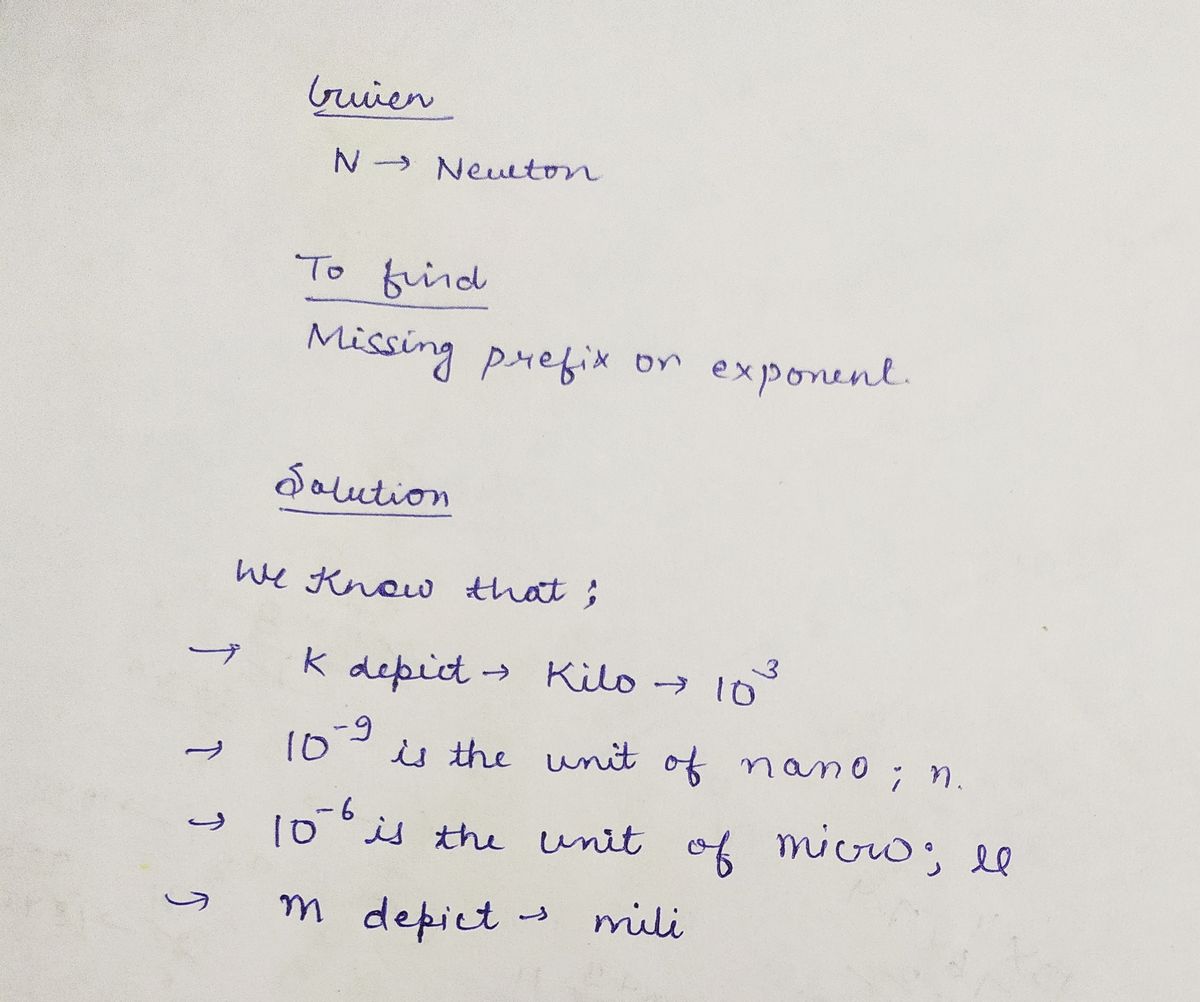 Given
N → Newton
To find
Missing prefix or exponent.
Solution
We Know that ;
→ K depict → Kilo → 10³
→ 10⁻⁹ is the unit of nano ; n.
→ 10⁻⁶ is the unit of micro ; μ
→ m depict → mili